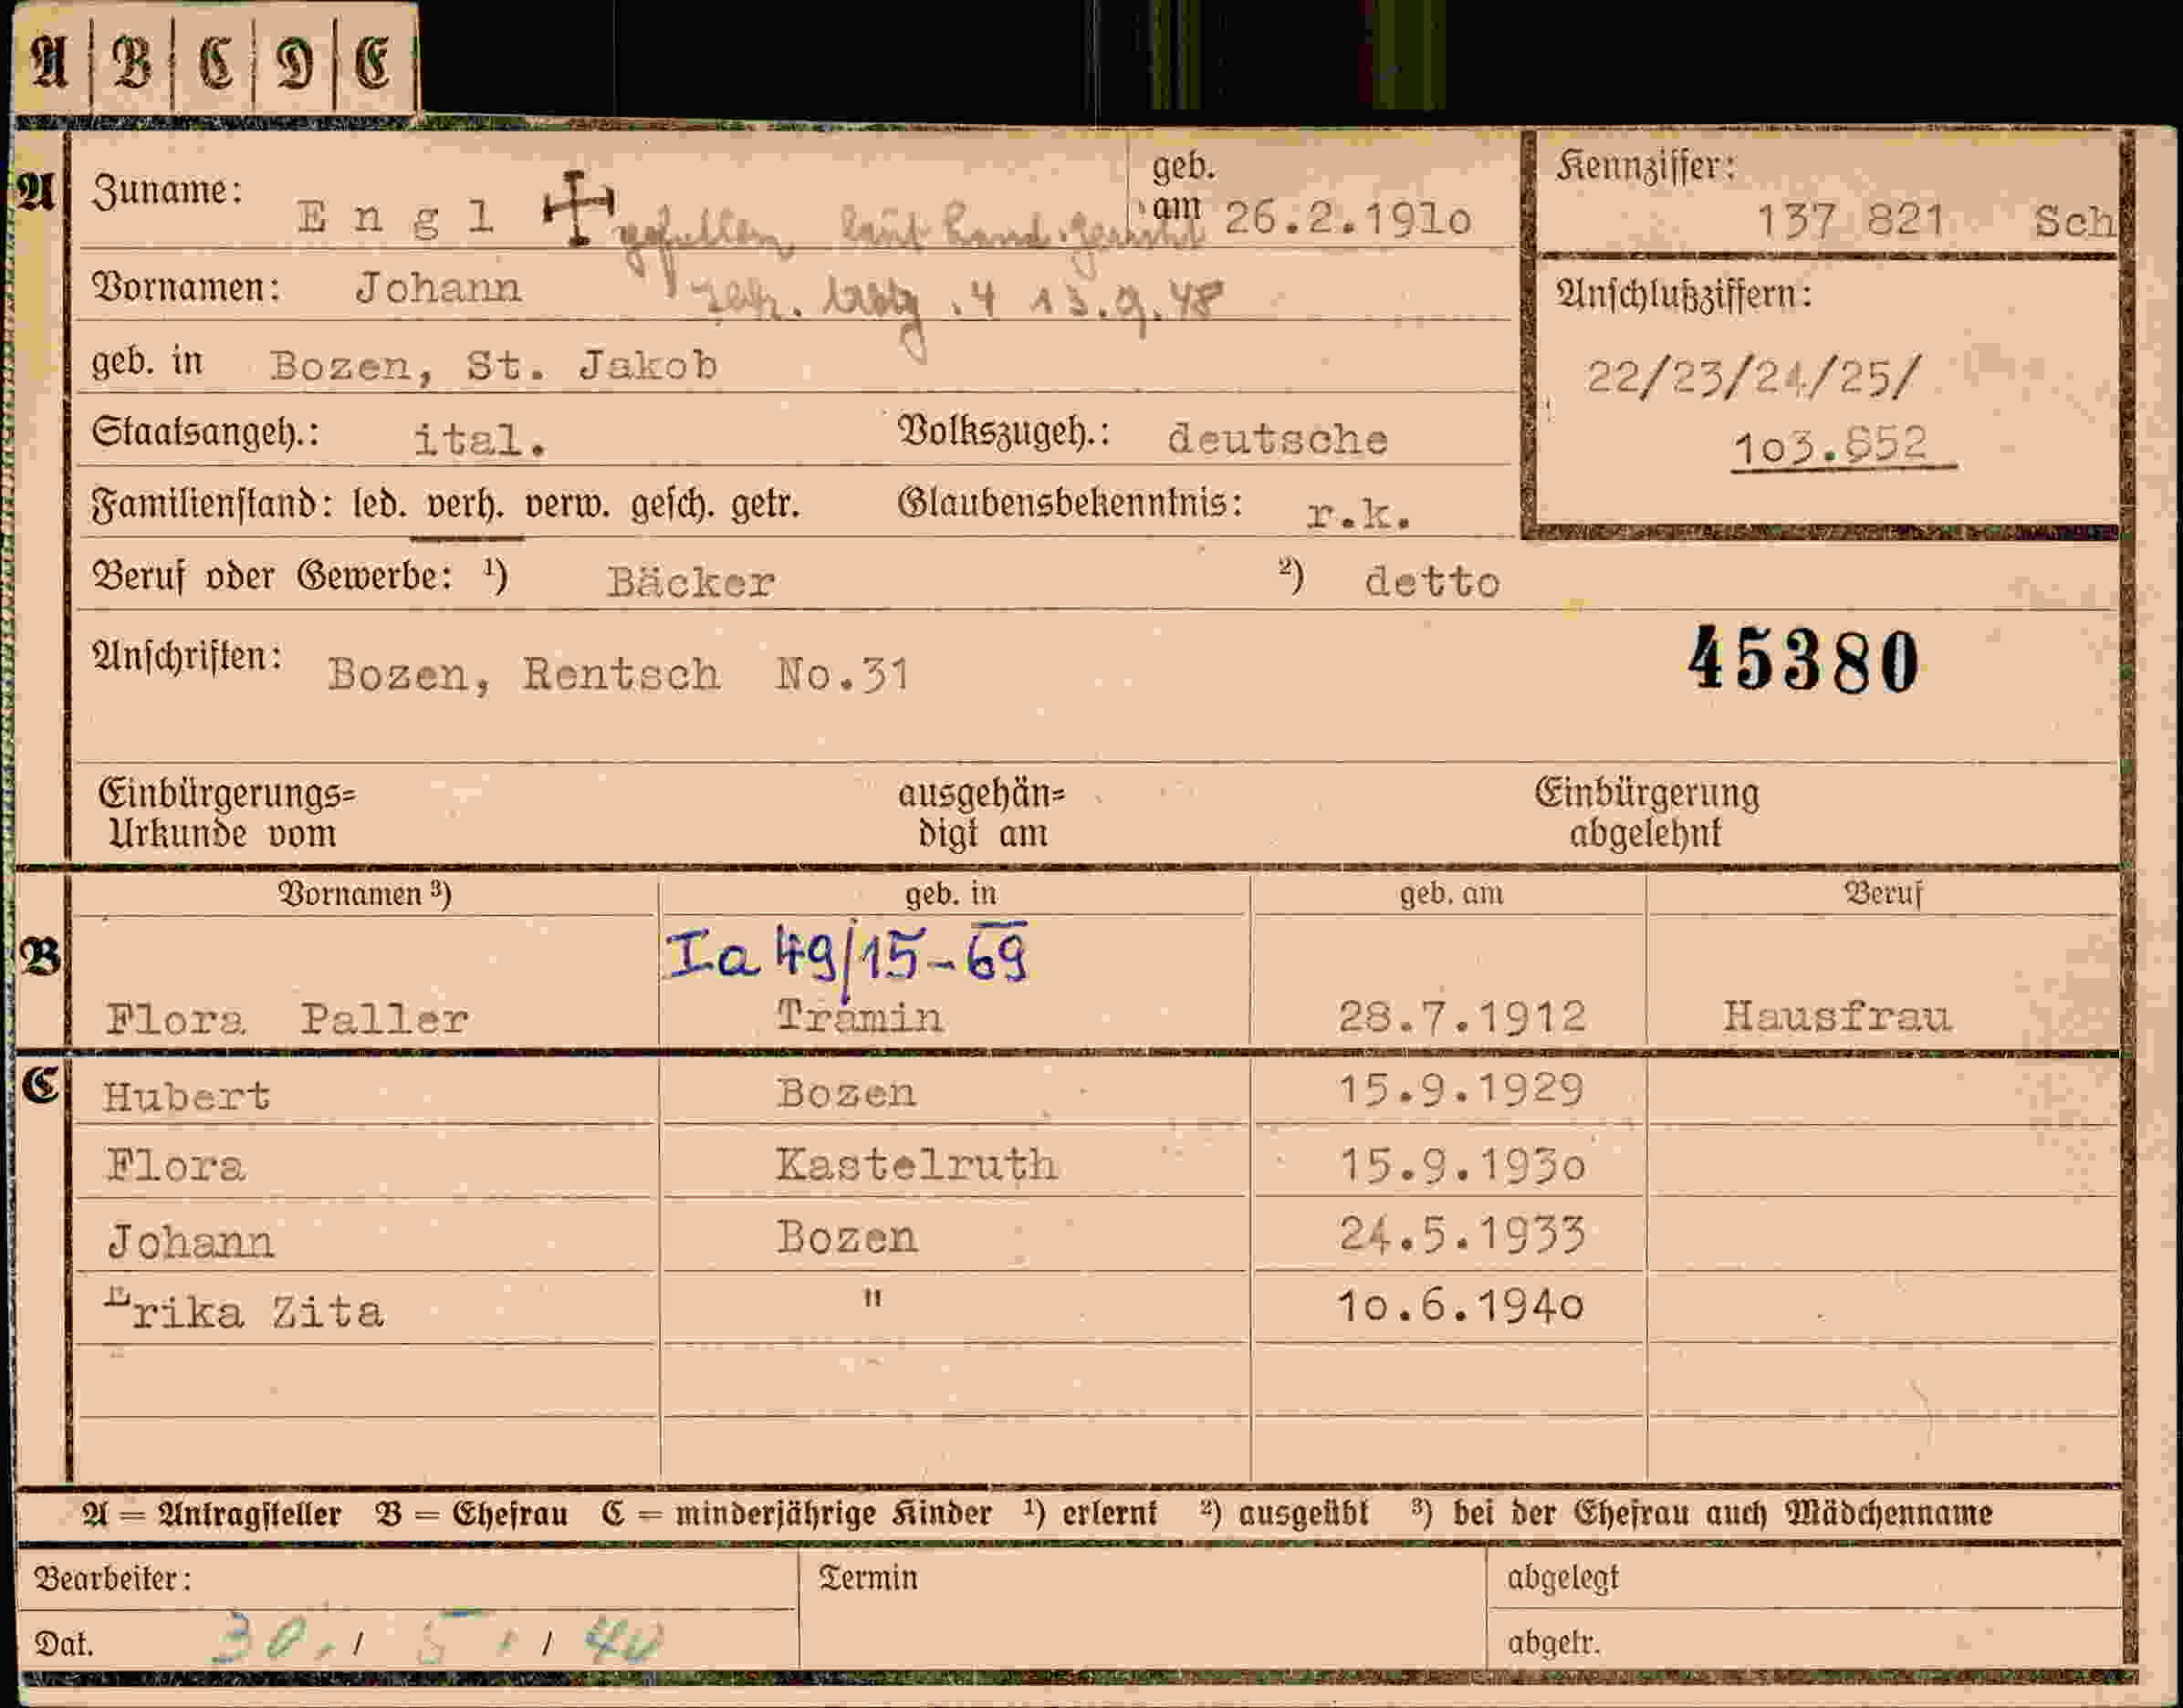 A B C D E
A Zuname: Engl gefallen laut geb. am 26.2.1910 Kennziffer: 137 821 Sch
Vornamen: Johann 13.9.48 Anschlußziffern:
geb. in Bozen, St. Jakob 22/23/24/25/
Staatsangeh.: ital. Volkszugeh.: deutsche 103.852
Familienstand: led. verh. verw. gesch. getr. Glaubensbekenntnis: r.k.
Beruf oder Gewerbe: ¹) Bäcker ²) detto
Anschriften: Bozen, Rentsch No.31 45380
Einbürgerungs= ausgehän= Einbürgerung
Urkunde vom digt am abgelehnt
Vornamen ³) geb. in geb. am Beruf
B Ia 49/15-69
Flora Paller Tramin 28.7.1912 Hausfrau
C Hubert Bozen 15.9.1929
Flora Kastelruth 15.9.1930
Johann Bozen 24.5.1933
Erika Zita " 10.6.1940
A = Antragsteller B = Ehefrau C = minderjährige Kinder ¹) erlernt ²) ausgeübt ³) bei der Ehefrau auch Mädchenname
Bearbeiter: Termin abgelegt
Dat. 30. / 5. / 40 abgetr.